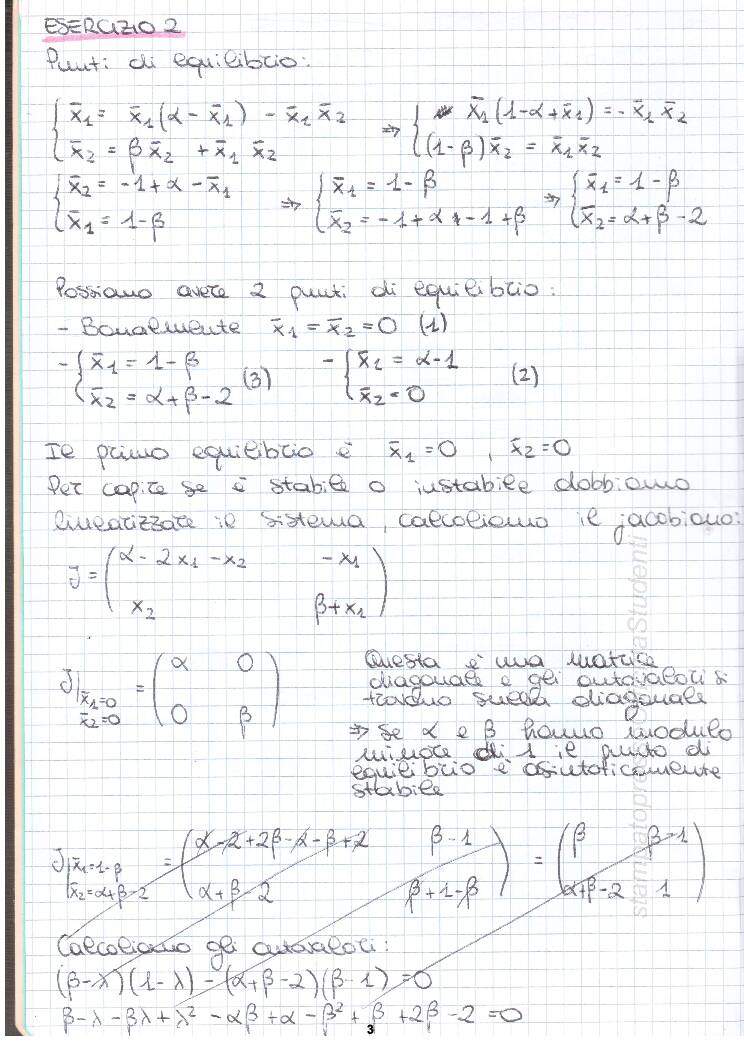 ESERCIZIO 2
Punti di equilibrio:
{ x̄1 = x̄1(α - x̄1) - x̄1 x̄2 ⇒ { x̄1(1-α+x̄1) = - x̄1 x̄2
{ x̄2 = βx̄2 + x̄1 x̄2 { (1-β)x̄2 = x̄1x̄2
{ x̄2 = -1+α - x̄1 ⇒ { x̄1 = 1-β ⇒ { x̄1 = 1-β
{ x̄1 = 1-β { x̄2 = -1+α -1+β { x̄2 = α+β-2
Possiamo avere 2 punti di equilibrio:
- Banalmente x̄1 = x̄2 = 0 (1)
- { x̄1 = 1-β (3) - { x̄1 = α-1 (2)
{ x̄2 = α+β-2 { x̄2 = 0
Il primo equilibrio è x̄1 = 0 , x̄2 = 0
Per capire se è stabile o instabile dobbiamo
linearizzare il sistema, calcoliamo il jacobiano:
J = ( α - 2x1 - x2 -x1 )
( x2 β+x1 )
J|x̄1=0 x̄2=0 = ( α 0 )
( 0 β )
Questa è una matrice
diagonale e gli autovalori si
trovano sulla diagonale
⇒ se α e β hanno modulo
minore di 1 il punto di
equilibrio è asintoticamente
stabile
J|x̄1=1-β x̄2=α+β-2 = ( α-2+2β-α-β+2 β-1 ) = ( β β-1 )
( α+β-2 β+1-β ) ( α+β-2 1 )
Calcoliamo gli autovalori:
(β-λ)(1-λ) - (α+β-2)(β-1) = 0
β-λ-βλ+λ² - αβ+α - β² + β + 2β - 2 = 0
3